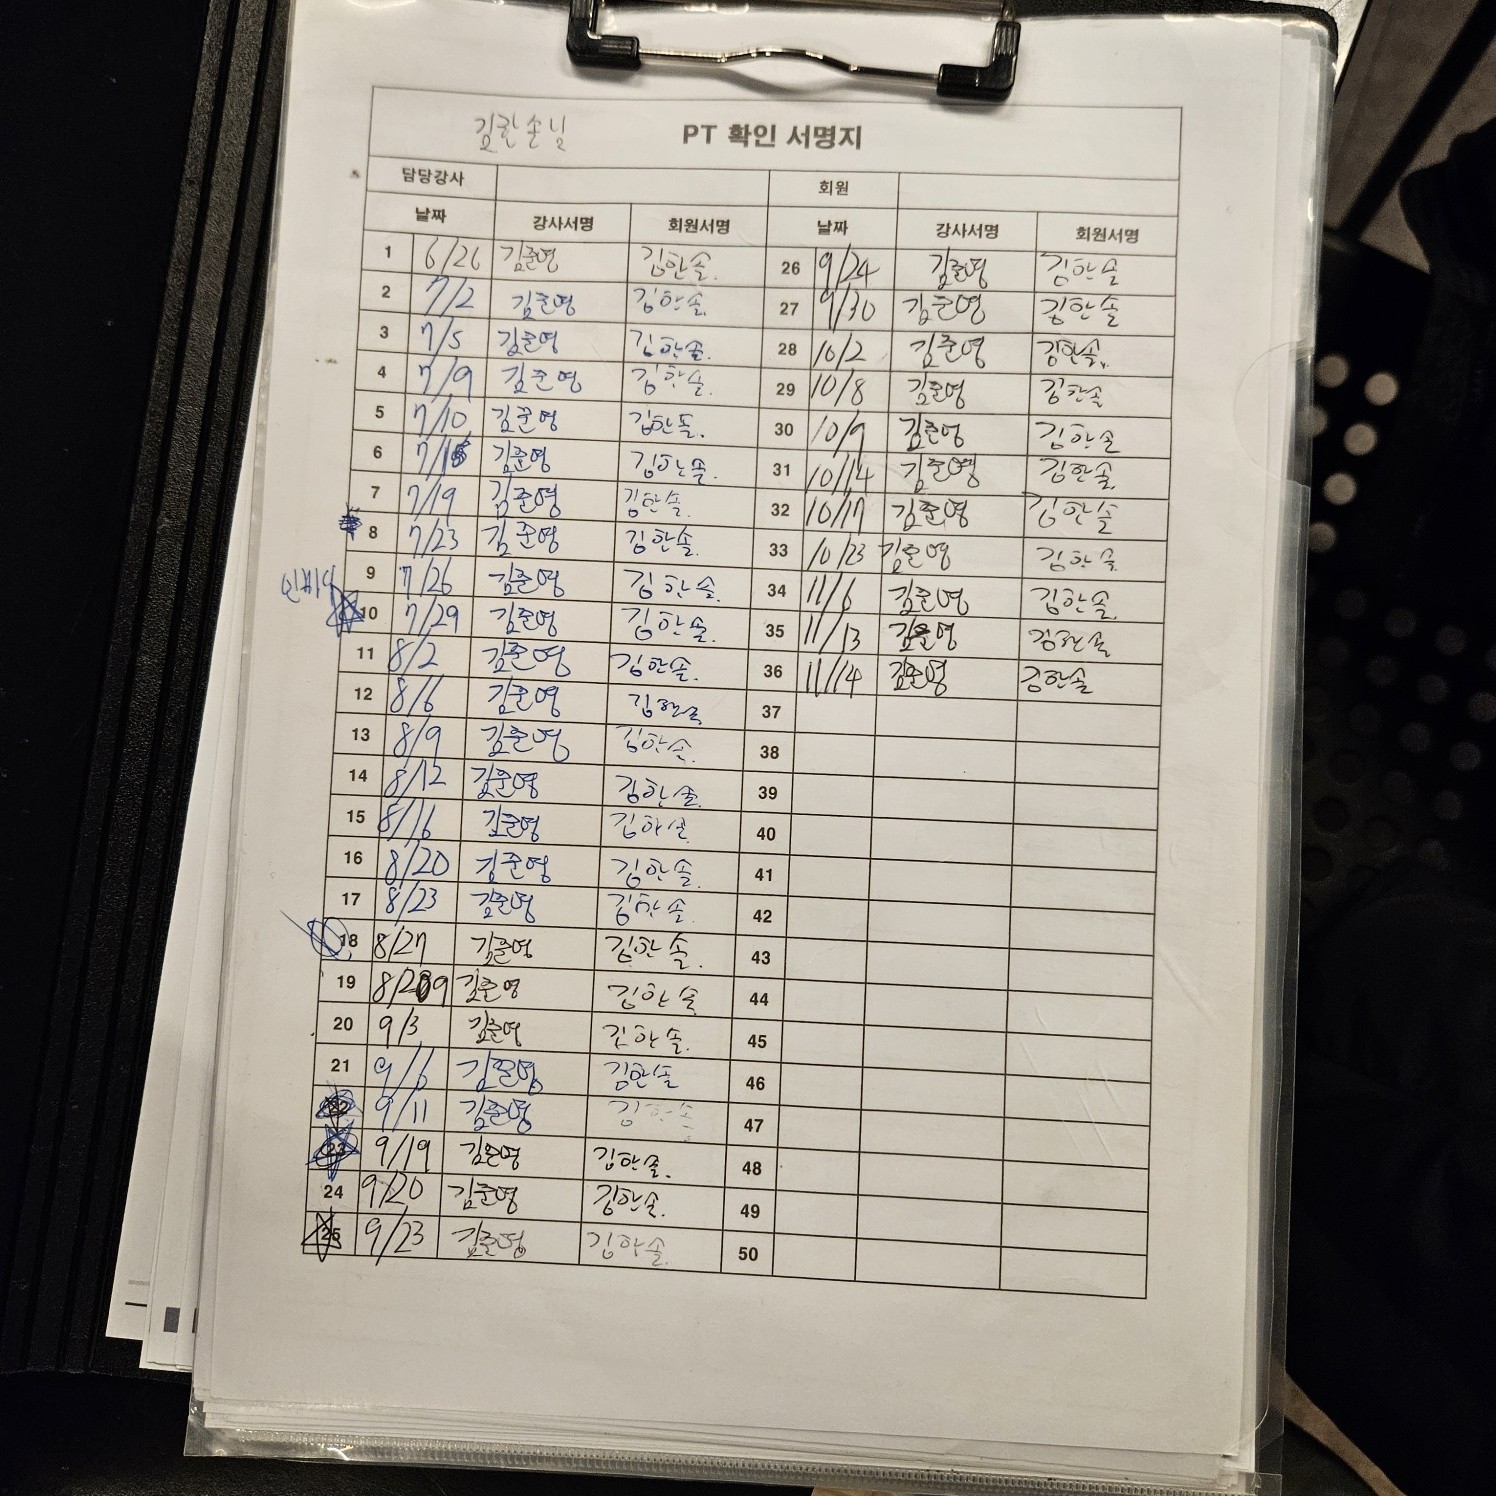 김한솔님 PT 확인 서명지
담당강사 회원
날짜 강사서명 회원서명 날짜 강사서명 회원서명
1 6/26 김준영 김한솔. 26 9/24 김준영 김한솔
2 7/2 김준영 김한솔. 27 9/30 김준영 김한솔
3 7/5 김준영 김한솔. 28 10/2 김준영 김한솔.
4 7/9 김준영 김한솔. 29 10/8 김준영 김한솔
5 7/10 김준영 김한솔. 30 10/9 김준영 김한솔
6 김준영 김한솔. 31 10/14 김준영 김한솔.
7 7/19 김준영 김한솔. 32 10/17 김준영 김한솔
8 7/23 김준영 김한솔. 33 10/23 김준영 김한솔
9 7/26 김준영 김한솔. 34 11/6 김준영 김한솔.
10 7/29 김준영 김한솔. 35 11/13 김준영 김한솔
11 8/2 김준영 김한솔. 36 11/14 김준영 김한솔
12 8/6 김준영 김한솔 37
13 8/9 김준영 김한솔. 38
14 8/12 김준영 김한솔. 39
15 8/16 김준영 김한솔. 40
16 8/20 김준영 김한솔. 41
17 8/23 김준영 김한솔. 42
18 8/27 김준영 김한솔. 43
19 김준영 김한솔 44
20 9/3 김준영 김한솔. 45
21 9/6 김준영 김한솔 46
22 9/11 김준영 김한솔 47
23 9/19 김준영 김한솔. 48
24 9/20 김준영 김한솔. 49
25 9/23 김준영 김한솔. 50